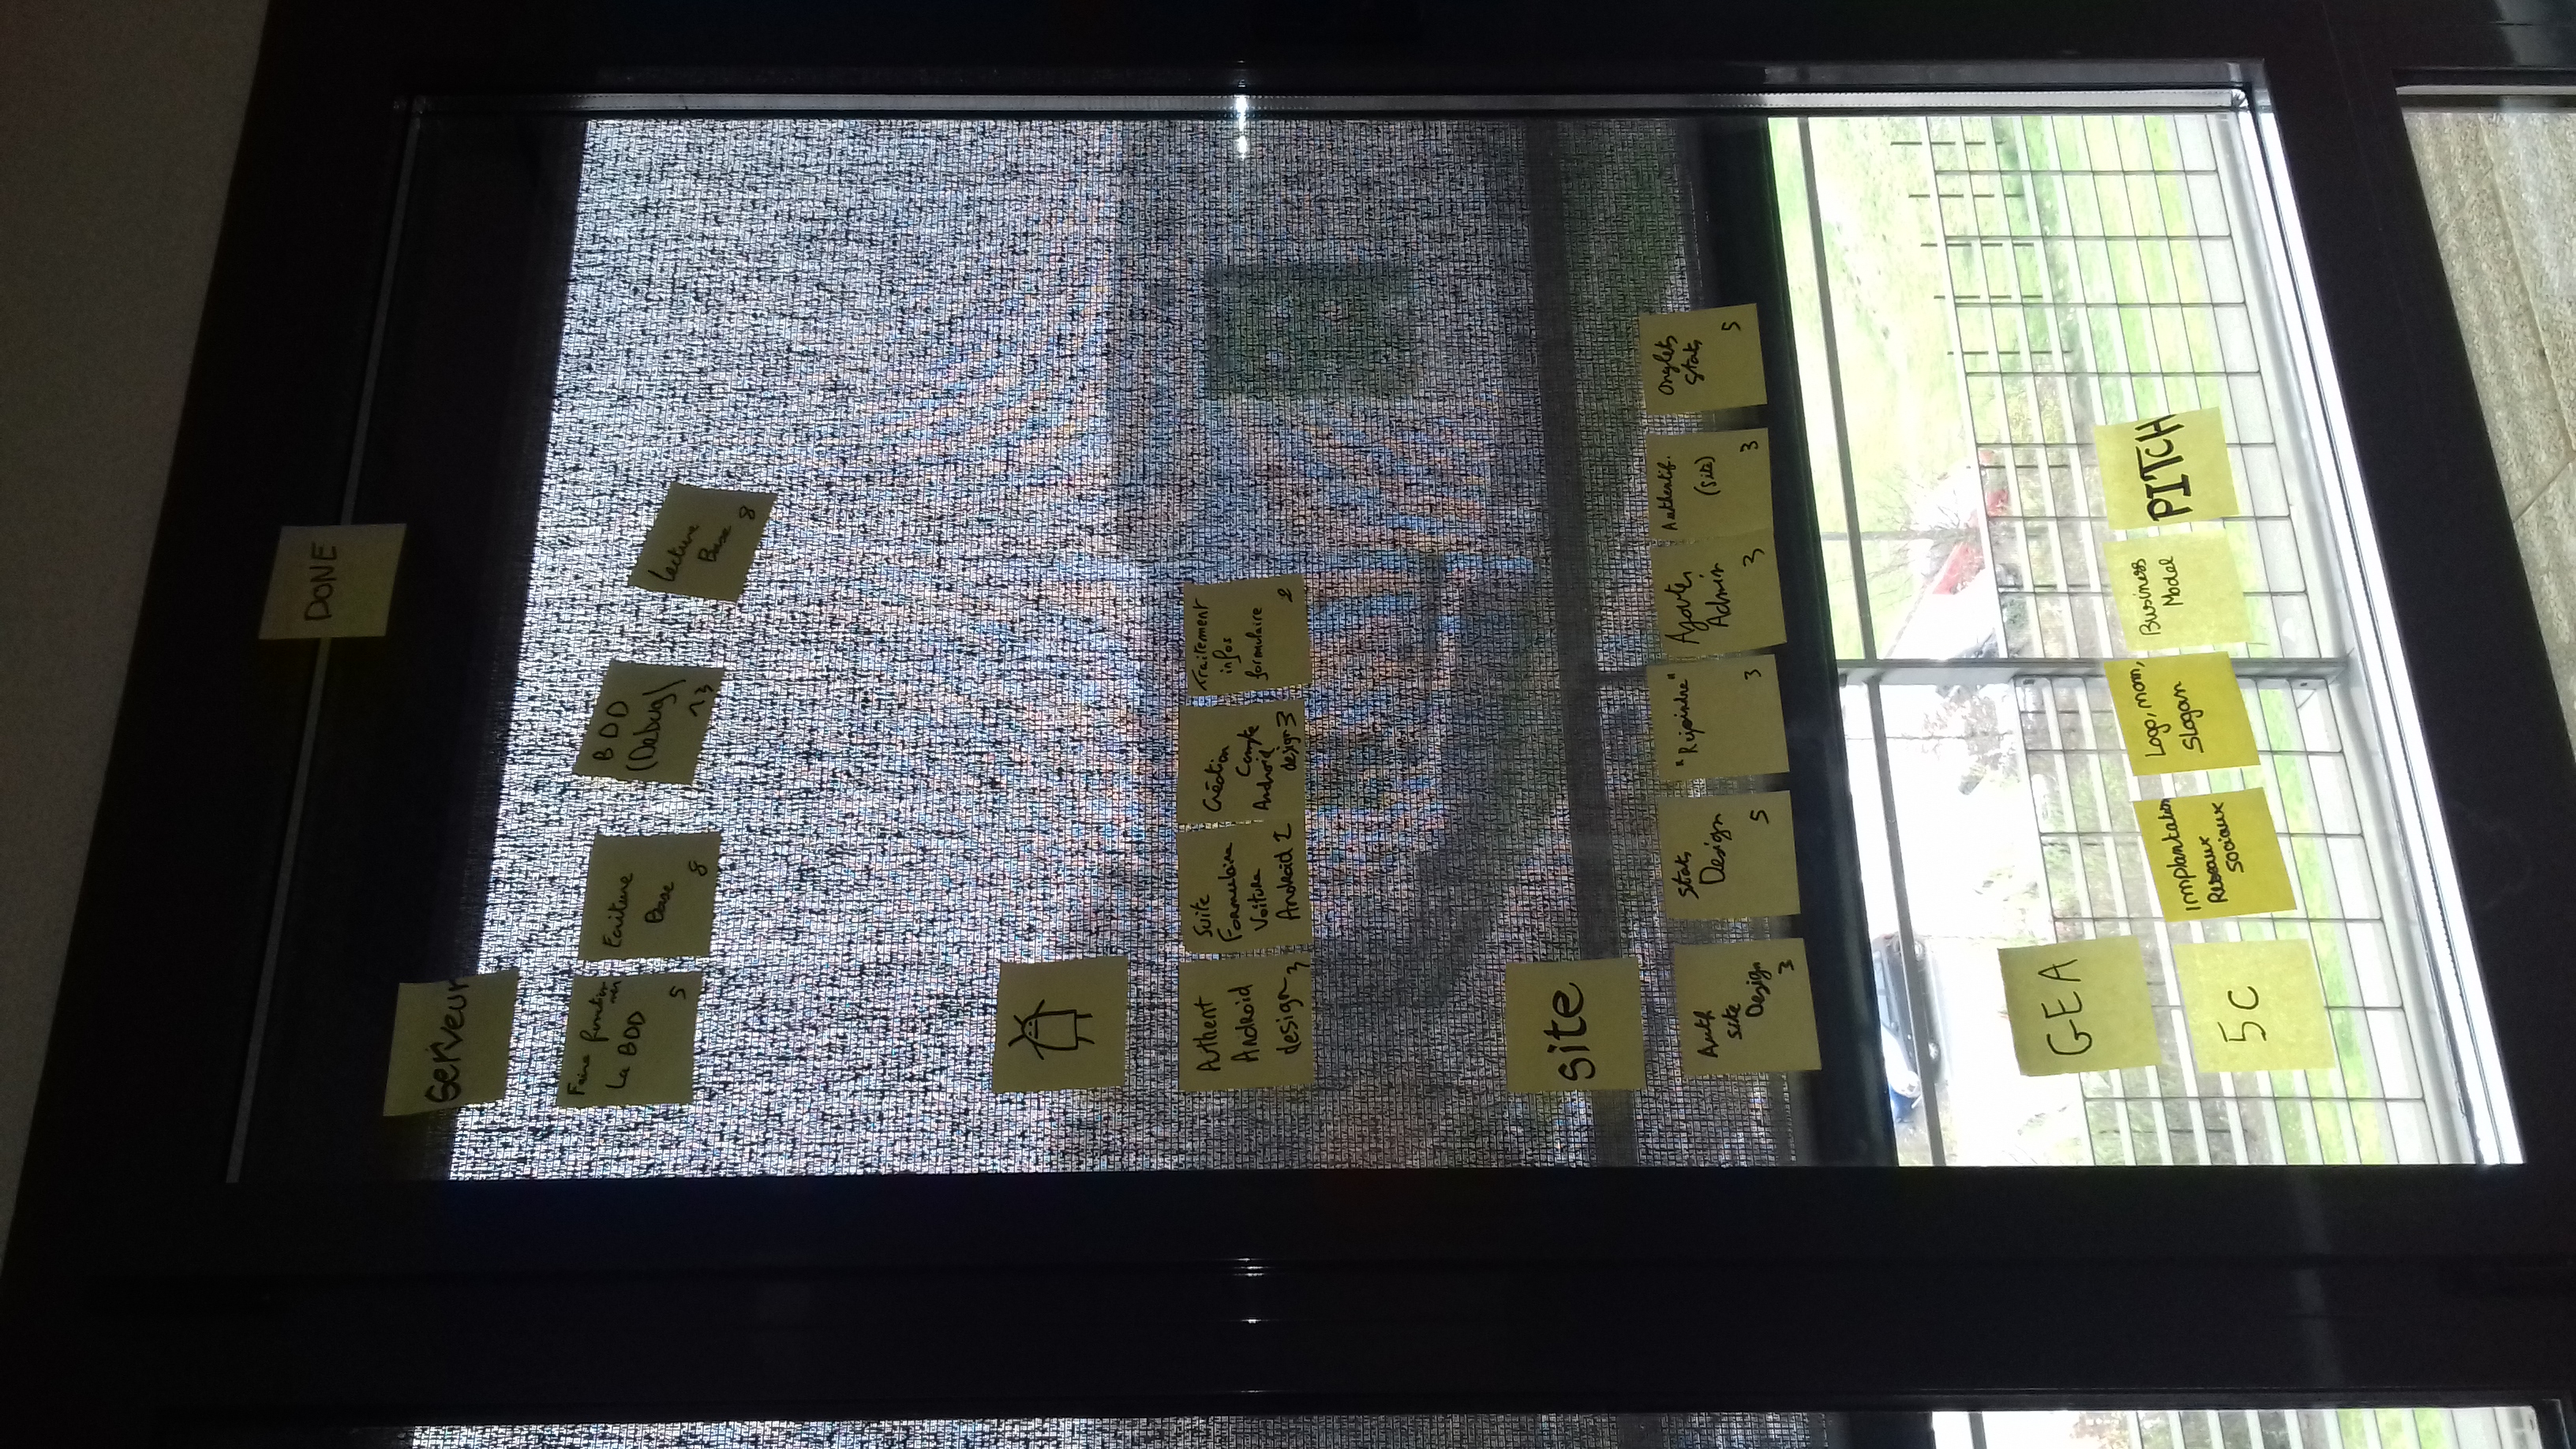 DONE
Serveur
Faire fonction
ner
La BDD
5
Ecriture
Base
8
BDD
(Debug)
13
Lecture
Base
8
Authent
Android
design 3
Suite
Formulaire
Voiture
Android 2
Création
Compte
Android
design 3
Traitement
infos
formulaire
2
site
Auth
site
Design
3
Stats
Design
5
"Rejoindre"
3
Ajouter
Admin
3
Authentif.
(Site)
3
Onglets
Stats
5
GEA
5C
Implantation
Reseaux
Sociaux
Logo, nom,
Slogan
Business
Model
PITCH